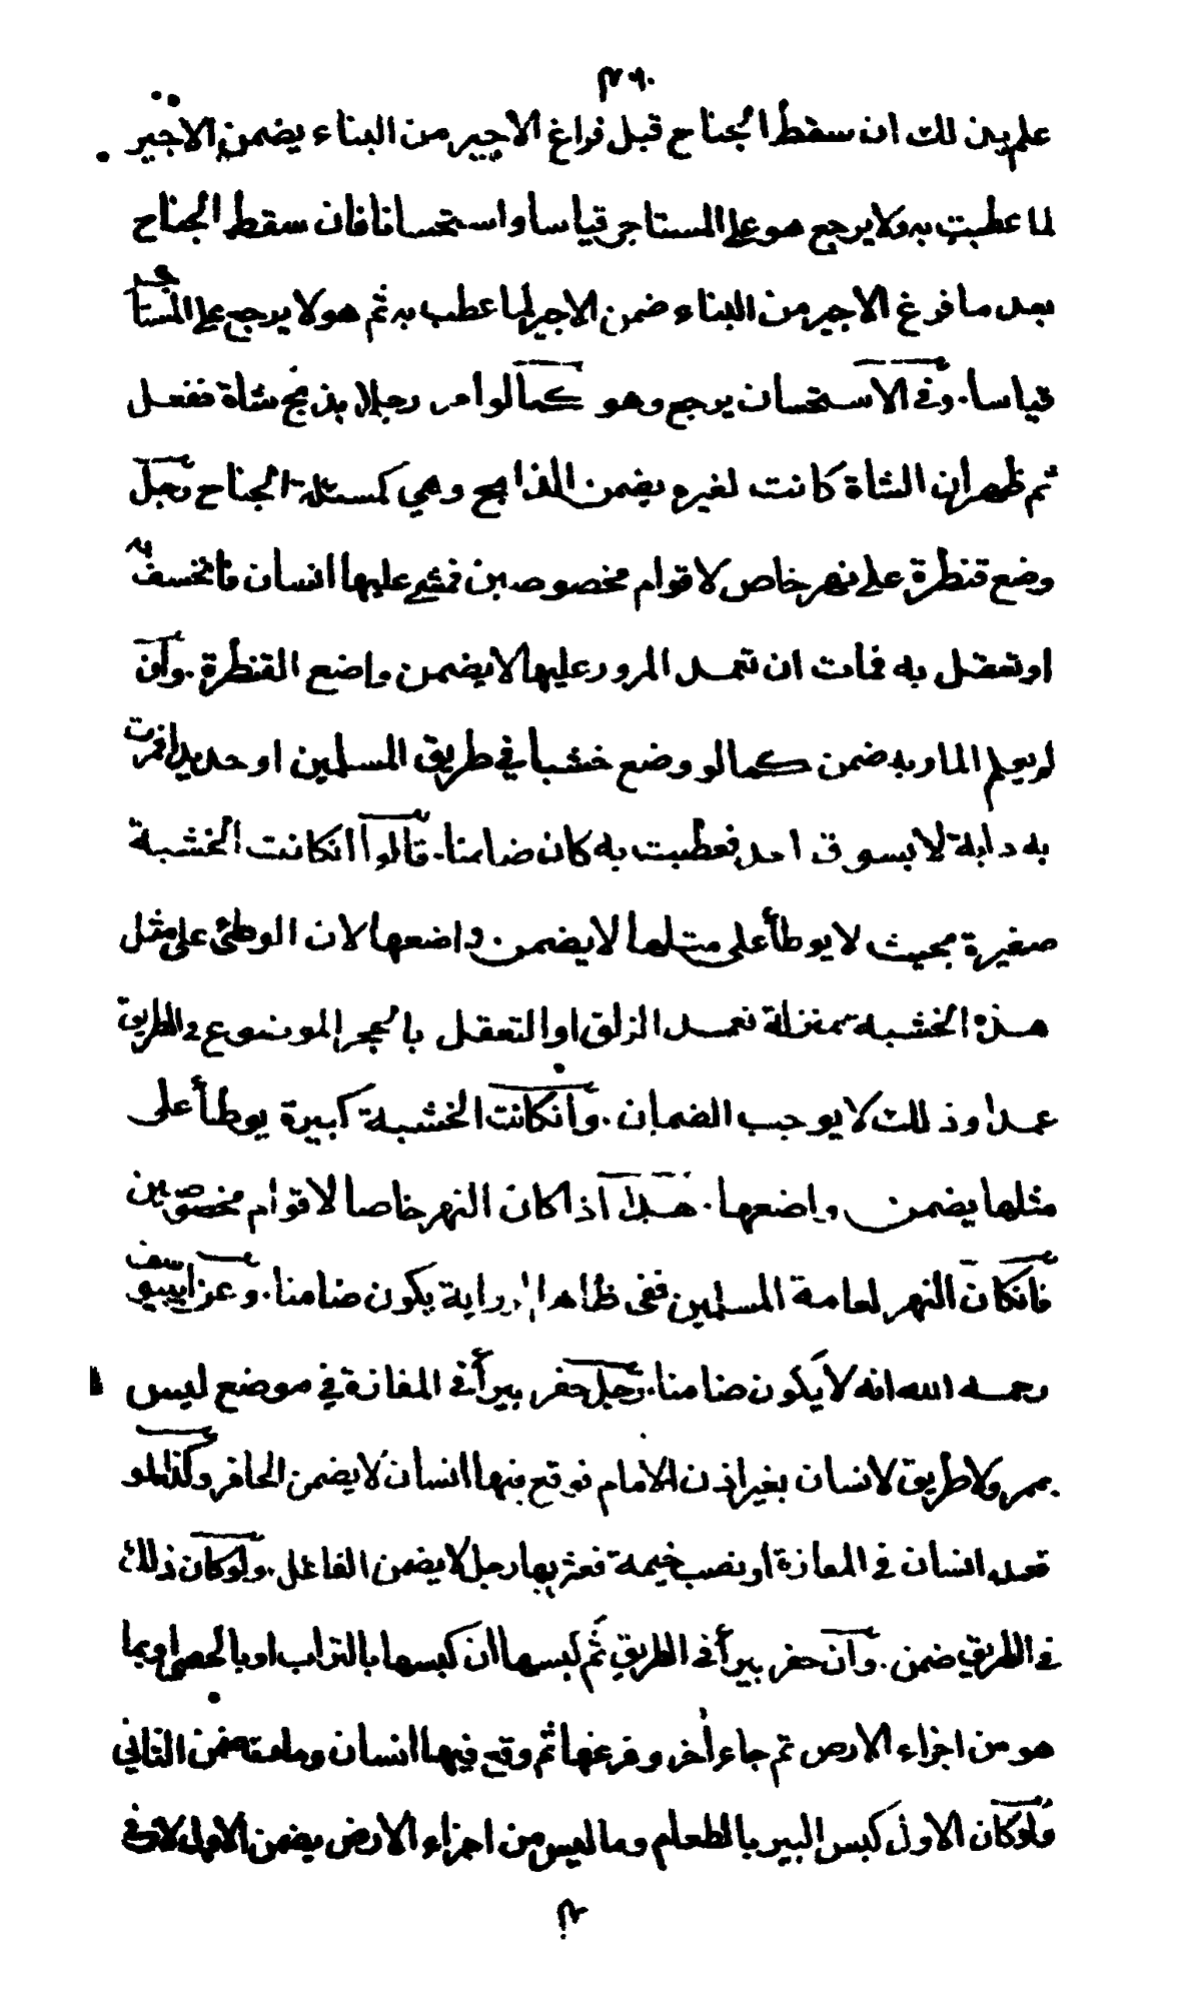 علم بذلك ان سقط الجناح قبل فراغ الاجير من البناء يضمن الاجير
لما عطبت به ولا يرجع هو على المستاجر قياسا واستحسانا فان سقط الجناح
بعد ما فرغ الاجير من البناء ضمن الاجير لما عطب به ثم هو لا يرجع على المستاجر
قياسا . وفى الاستحسان يرجع وهو كما لو امر رجلا بذبح شاة ففعل
ثم ظهر ان الشاة كانت لغيره يضمن الذابح وهي كمسئلة الجناح رجل
وضع قنطرة على نهر خاص لاقوام مخصوصين فمشى عليها انسان فانخسف به
او تعقل به فمات ان تعمد المرور عليها لا يضمن واضع القنطرة . وان
لم يعلم المار به ضمن كما لو وضع خشبا في طريق المسلمين او حديدا فمرت
به دابة لا بسوق احد فعطبت به كان ضامنا . قالوا انكانت الخشبة
صغيرة بحيث لا يوطأ على مثلها لا يضمن واضعها لان الوطئ على مثل
هذه الخشبة بمنزلة تعمد الزلق او التعقل بالحجر الموضوع فى الطريق
عمدا وذلك لا يوجب الضمان . وانكانت الخشبة كبيرة يوطأ على
مثلها يضمن واضعها . هذا اذا كان النهر خاصا لاقوام مخصوصين
فانكان النهر لعامة المسلمين ففى ظاهر الرواية يكون ضامنا . وعن ابييوسف
رحمه الله انه لا يكون ضامنا . رجل حفر بيرأ فى المفازة في موضع ليس
بممر ولا طريق لانسان بغير اذن الامام فوقع فيها انسان لا يضمن الحافر وكذا لو
قعد انسان فى المفازة او نصب خيمة فعثر بها رجل لا يضمن الفاعل . ولوكان ذلك
فى الطريق ضمن . وان حفر بيرأ فى الطريق ثم كبسها ان كبسها بالتراب او بالحصى او بما
هو من اجزاء الارض ثم جاء أخر وفرغها ثم وقع فيها انسان ومات ضمن الثاني
ولوكان الاول كبس البير بالطعام وما ليس من اجزاء الارض يضمن الاول لان فى